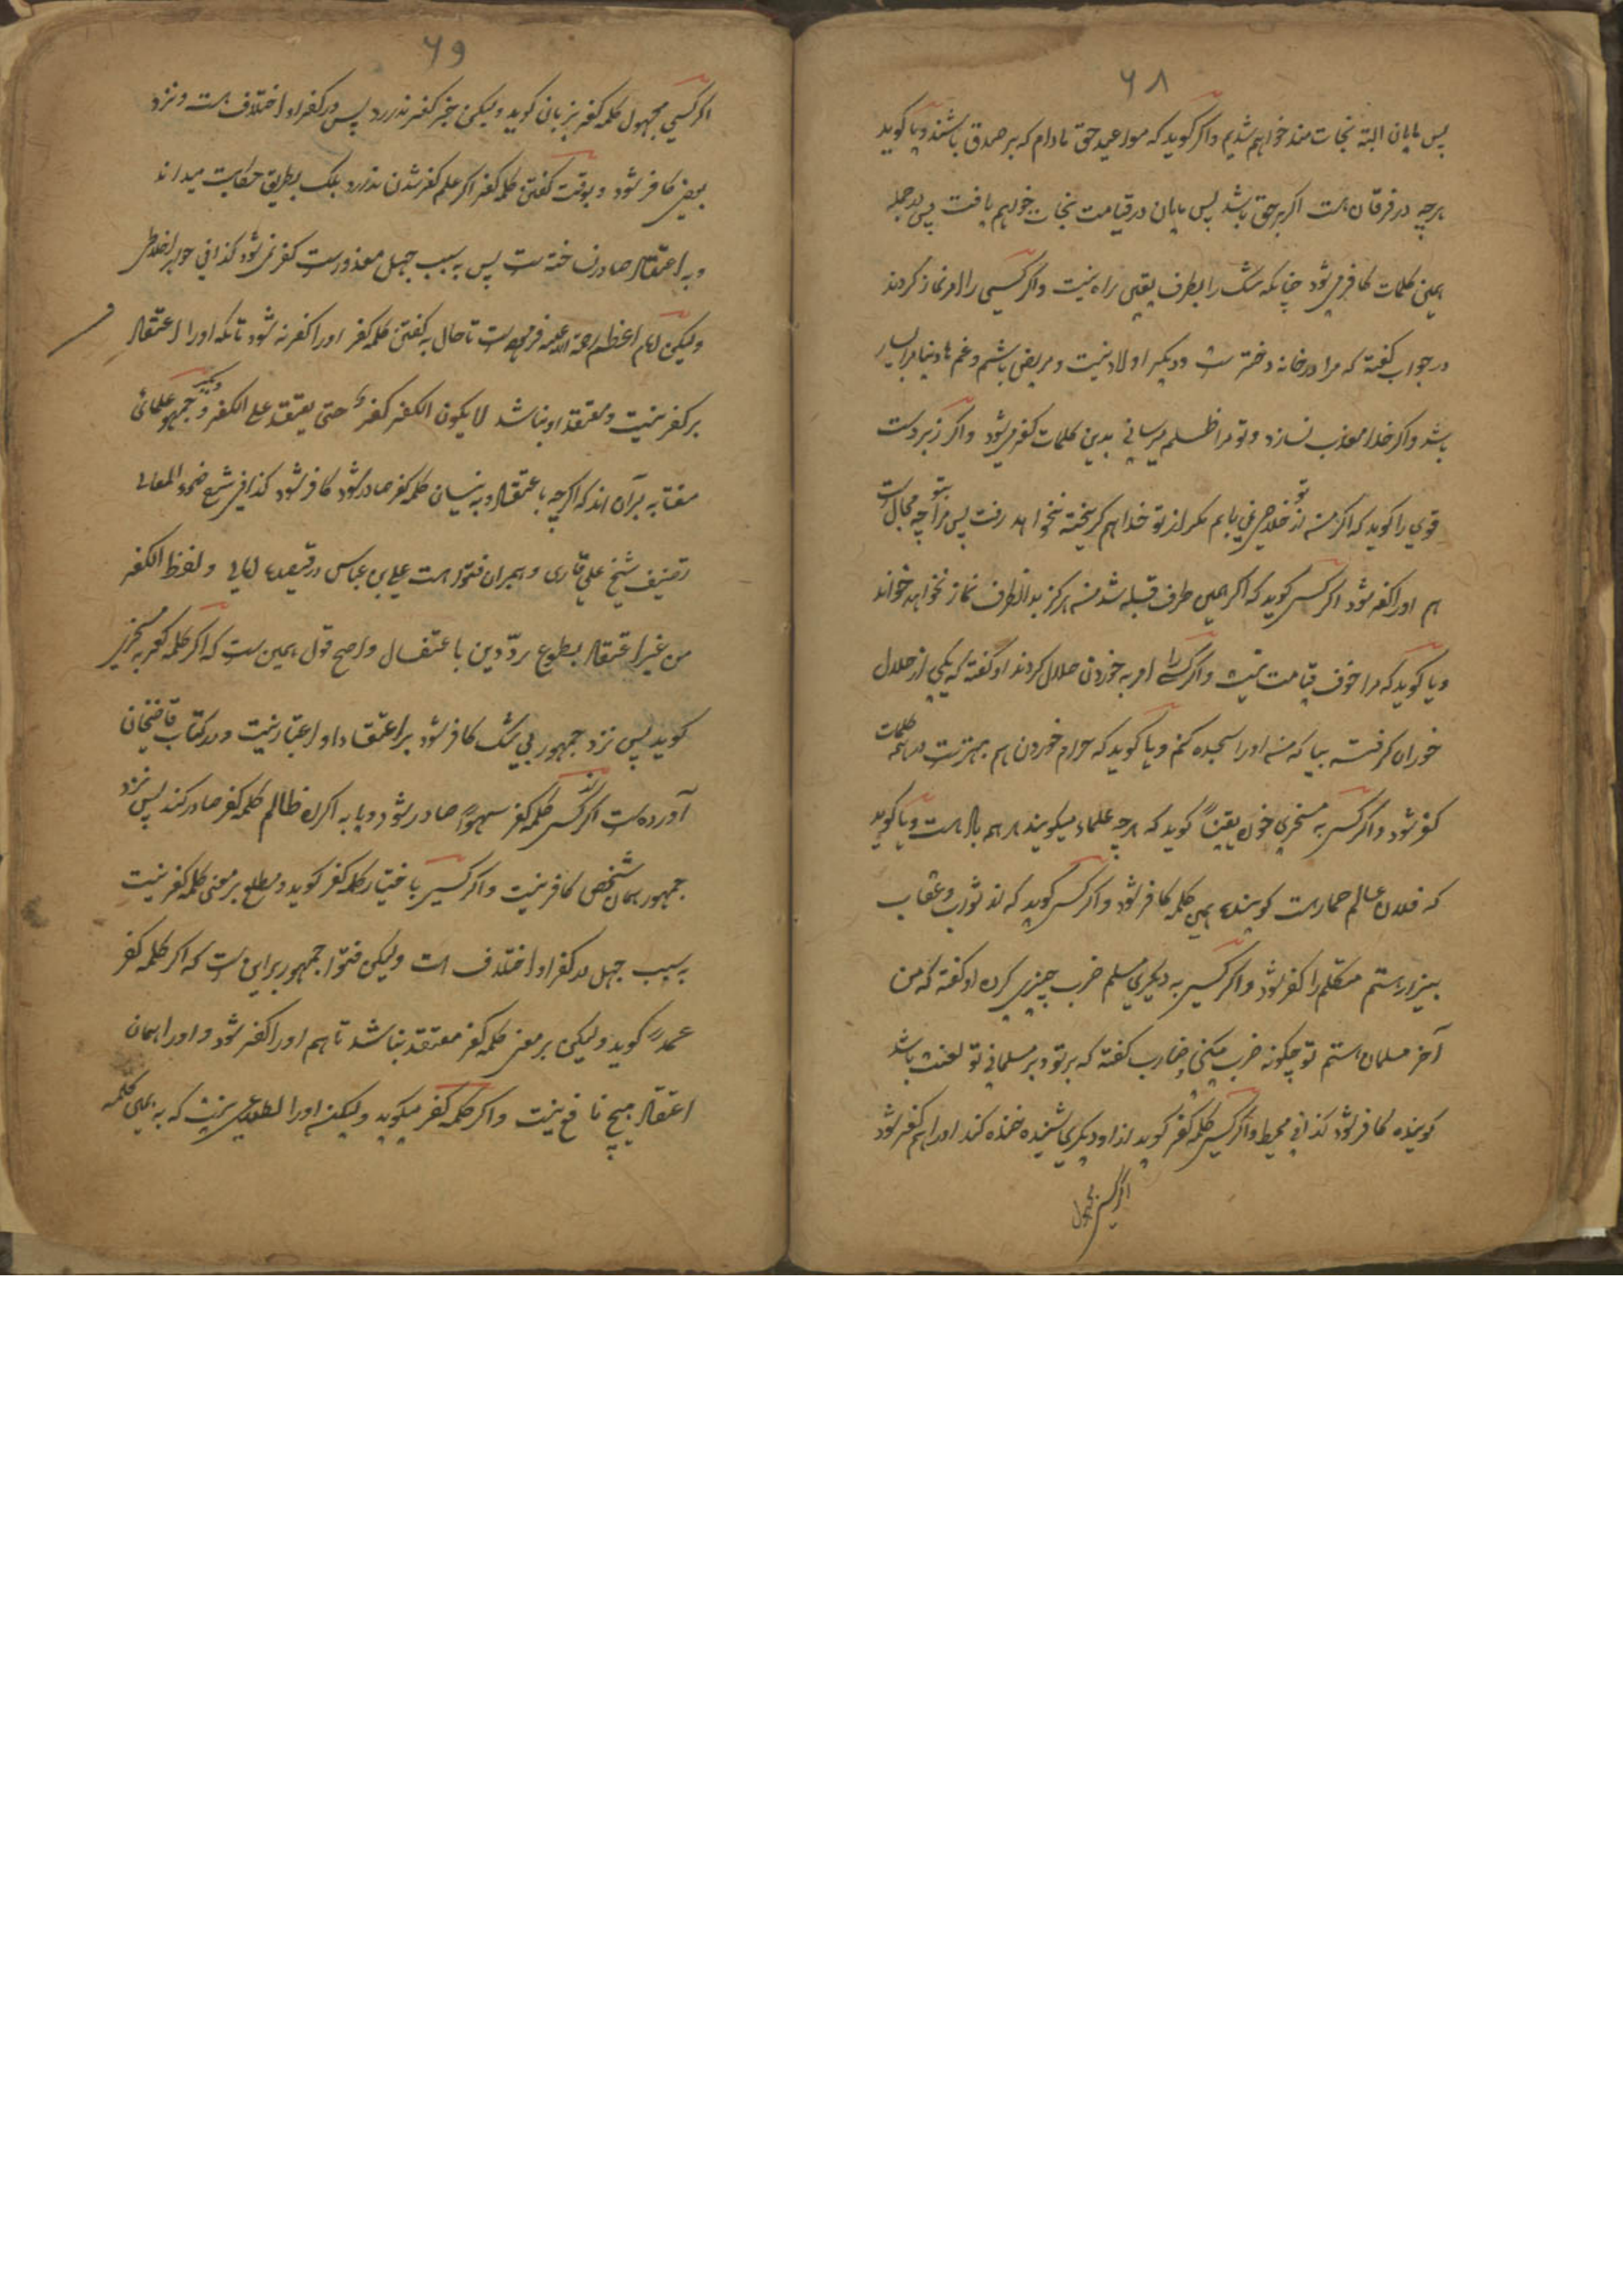 ۶۸
پس مایان البته نجات مند خواهم شدیم واکر کوید که مواعید حق مادام که بر صدق باشند ویا کوید
هرچه در فرقان هست اکر بر حق باشد پس مایان در قیامت نجات خواهم یافت پس در جمله
همین کلمات کافر میشود چنانکه شک را بطرف یقین راه نیست واکر کسی را امر نماز کردند
در جواب کفته که مرا در خانه دختر ست ودیکر اولاد نیست ومریض باشم وغم هاء دنیا مرا بسیار
باشد واکر خدا معذب نسازد وتو مرا ظلم میرسانی بدین کلمات کفر میشود واکر زبردست
قوی را کوید که اکر من از تو خلاص نمی یابم مکر از تو خدا هم کریخته نخواهد رفت پس مرا بتو چه مجال ست
هم اورا کفر شود اکر کسی کوید که اکر همین طرف قبله شد من هرکز بدانطرف نماز نخواهد خواند
ویا کوید که مرا خوف قیامت نیست واکر کسی را امر به خوردن حلال کردند او کفته که یکی از حلال
خوران کرفته بیا که من اورا سجده کنم ویا کوید که حرام خوردن هم بهترست در همه کلمات
کفر شود واکر کسی به مسخری خوه یقینًا کوید که هرچه علماء میکویند همه باد هست ویا کوید
که فلان عالم حمار هست کوینده همین کلمه کافر شود واکر کسی کوید که از ثواب وعقاب
بیزار هستم متکلم را کفر شود واکر کسی به دیکری مسلم ضرب چیزی کرده او کفته که من
آخر مسلمان هستم تو چکونه ضرب میکنی ضارب کفته که بر تو وبر مسلمانی تو لعنت باشد
کوینده کافر شود کذا فی محیط واکر کسی کلمه کفر کوید از او دیکری شنیده خنده کند اورا هم کفر شود
اکر کسی مجهول
۶۹
اکر کسی مجهول کلمه کفر بزبان کوید ولیکن خبر کفر ندارد پس در کفر او اختلاف هست ونزد
بعض کافر شود وبوقت کفتن کلمه کفر اکر علم کفر شدن ندارد بلک بطریق حکایت میداند
وبه اعتقاد صادر نساخته ست پس به سبب جهل معذورست کفر نمی شود کذا فی جواهر اخلاطی
ولیکن امام اعظم رحمة الله علیه فرموده ست تا حال به کفتن کلمه کفر اورا کفر نه شود تا که اورا اعتقاد
بر کفر نیست ومعتقد او نباشد لا یکون الکفر کفرا حتی یعتقد علی الکفر ودیکر جمهور علمائی
مفتا به برآن اند که اکرچه با عتقاد وبه نسیان کلمه کفر صادر شود کافر شود کذا فی شرح ضوء المعالی
تصنیف شیخ علی قاری وهمبران فتوا هست علی بن عباس در قصیده امالی ولفظ الکفر
من غیر اعتقاد بطوع ردّ دین باعتفال واصح قول همین ست که اکر کلمه کفر به مسخری
کوید پس نزد جمهور بی شک کافر شود بر اعتقاد او اعتبار نیست ودر کتاب قاضیخان
آورده ست اکر از کسی کلمه کفر سهوًا صادر شود ویا به اکراه ظالم کلمه کفر صادر کند پس نزد
جمهور همان شخص کافر نیست واکر کسی باختیار کلمه کفر کوید ومطلع بر معنی کلمه کفر نیست
به سبب جهل در کفر او اختلاف است ولیکن فتوا جمهور بر این ست که اکر کلمه کفر
عمدا کوید ولیکن بر معنی کلمه کفر معتقد نباشد تا هم اورا کفر شود واورا همان
اعتقاد هیچ نافع نیست واکر کلمه کفر میکوید ولیکن اورا اطلاع نیست که به همین کلمه